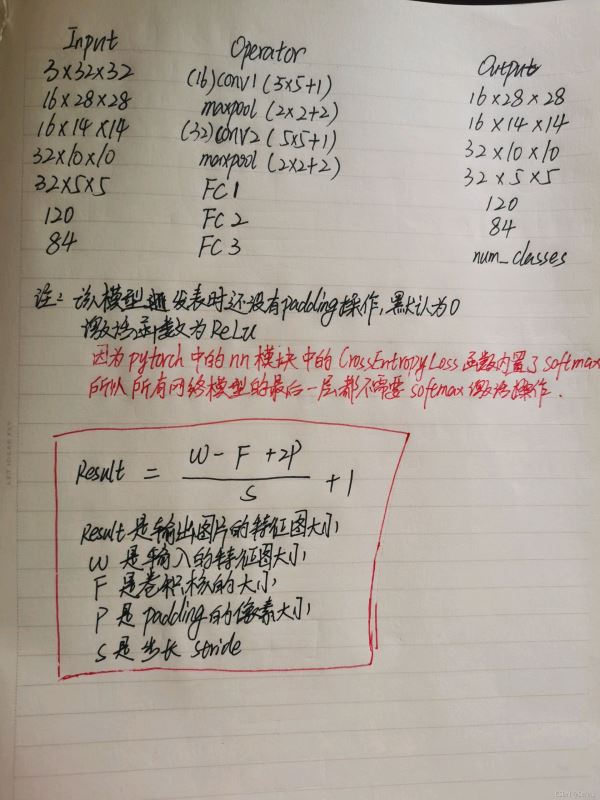 Input Operator Output
3×32×32 (16)conv1 (5×5+1) 16×28×28
16×28×28 maxpool (2×2+2) 16×14×14
16×14×14 (32)conv2 (5×5+1) 32×10×10
32×10×10 maxpool (2×2+2) 32×5×5
32×5×5 FC1 120
120 FC2 84
84 FC3 num_classes
注：该模型 发表时还没有padding操作,默认为0
激活函数为ReLu
因为pytorch中的nn模块中的CrossEntropyLoss函数内置了softmax
所以所有网络模型的最后一层都不需要softmax激活操作.
Result = (W-F+2P)/S + 1
Result是输出图片的特征图大小
W是输入的特征图大小
F是卷积核的大小
P是padding的像素大小
S是步长 stride